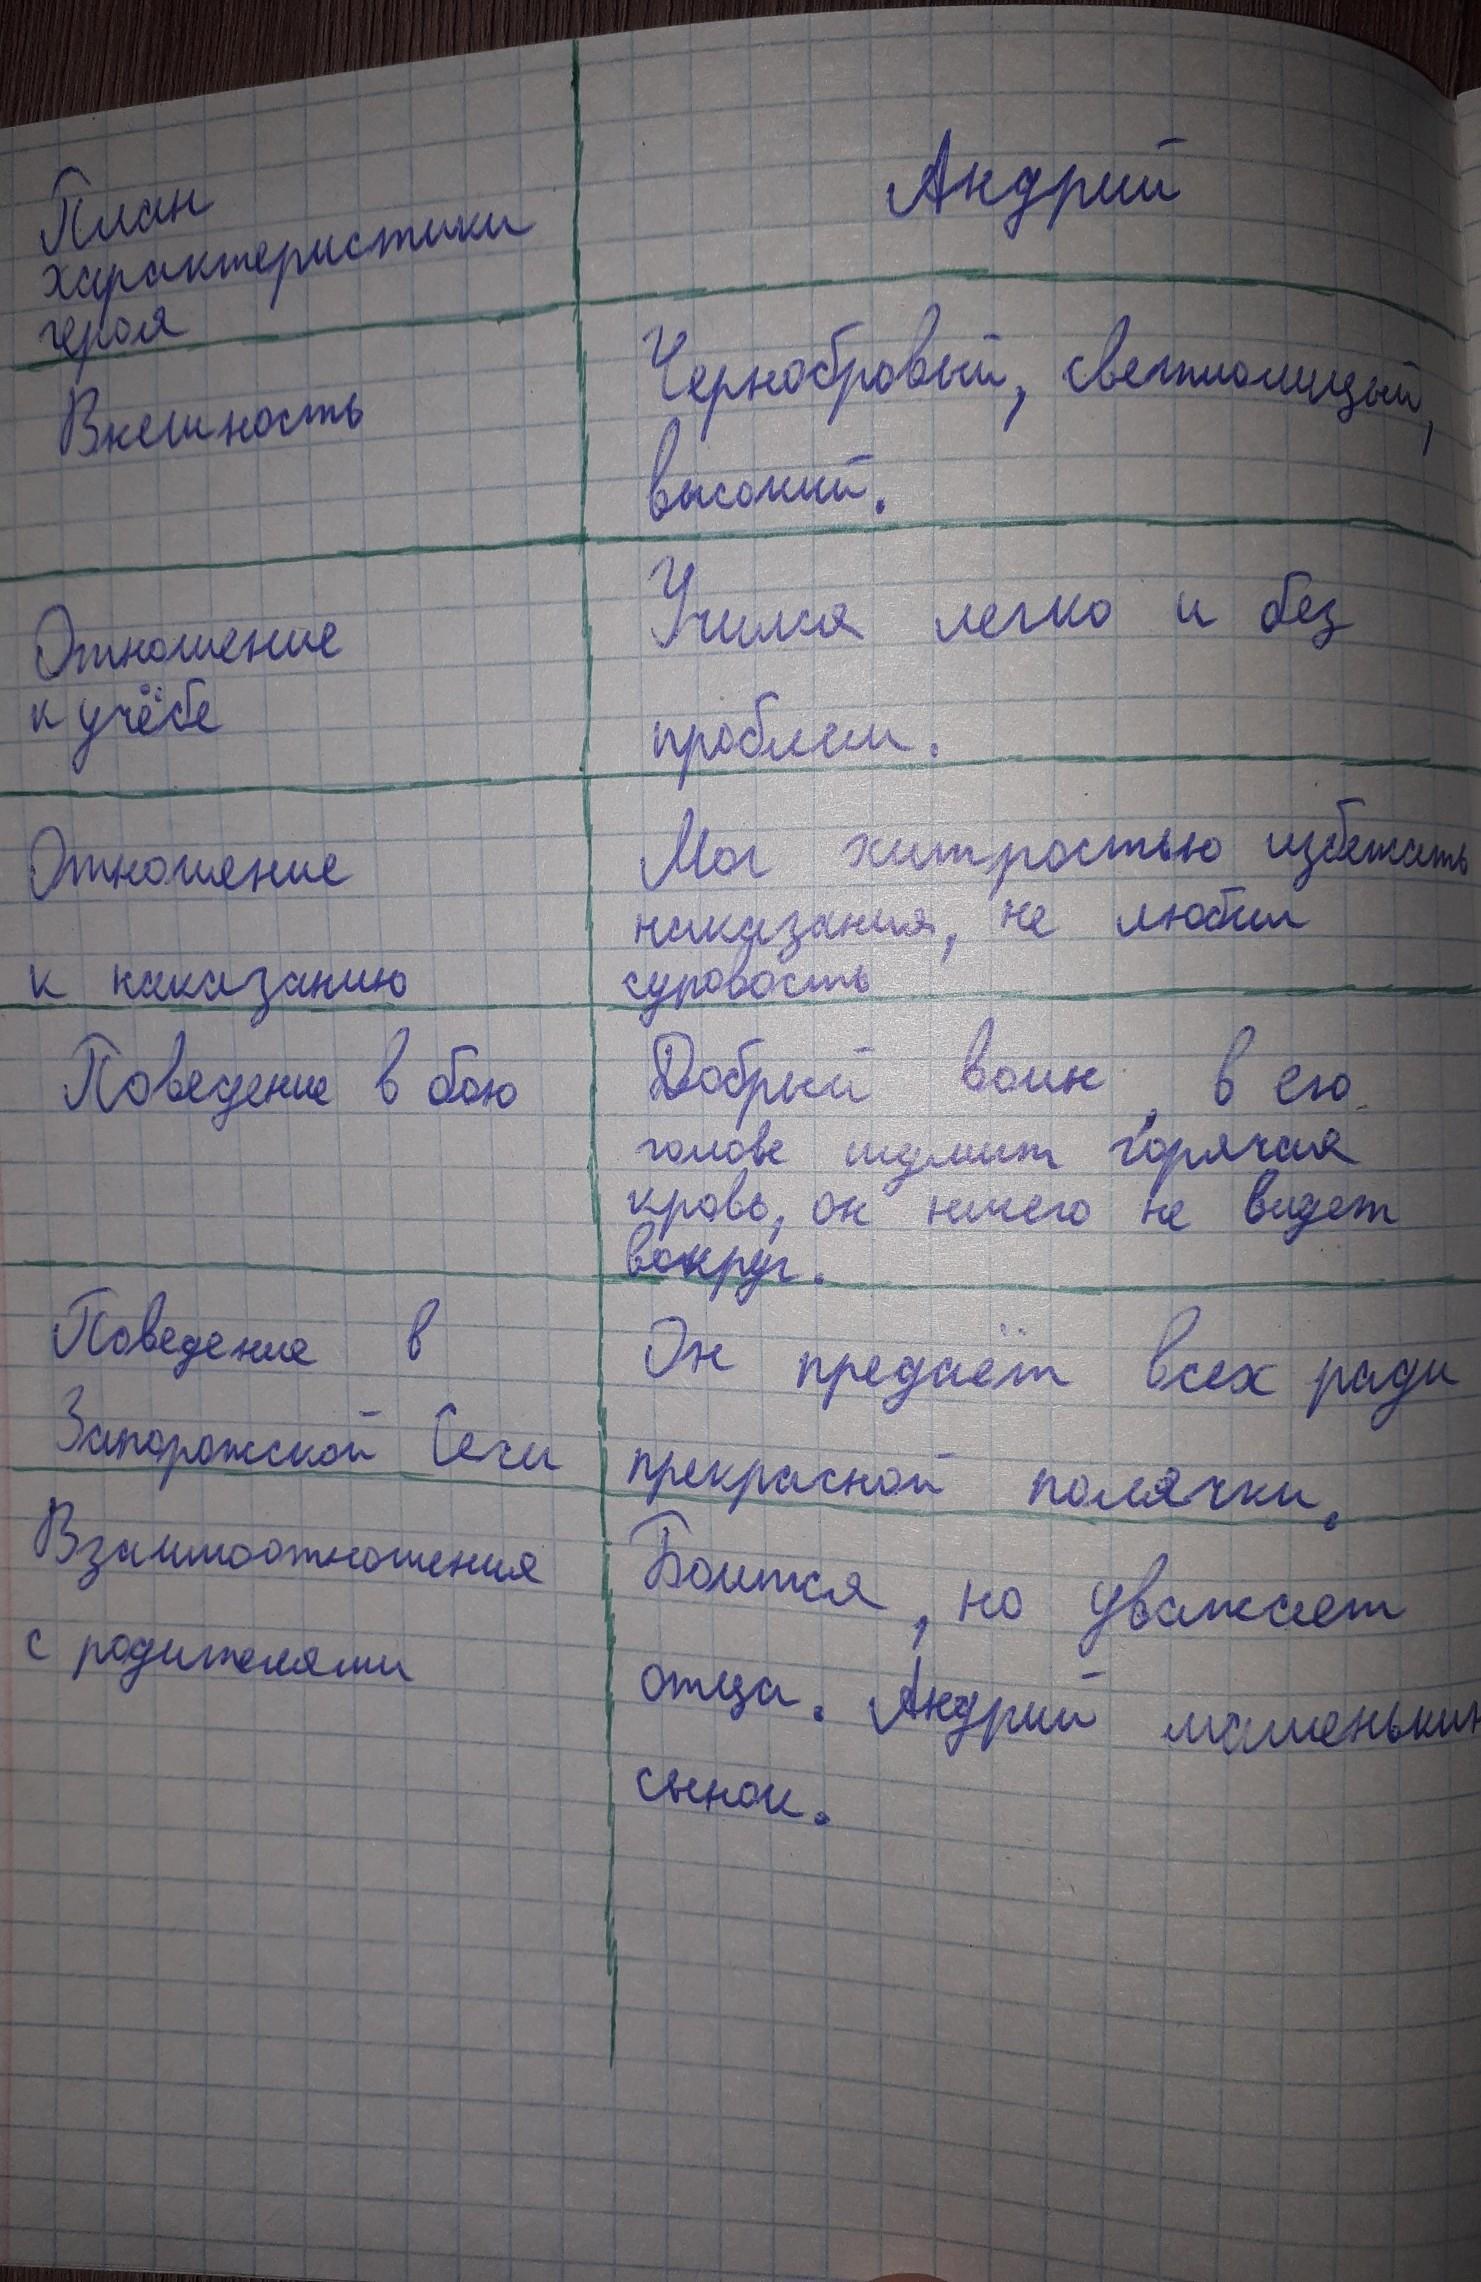 План
характеристики
героя
Андрий
Внешность
Чернобровый, светлолицый,
высокий.
Отношение
к учёбе
Учился легко и без
проблем.
Отношение
к наказанию
Мог хитростью избежать
наказания, не любил
суровость
Поведение в бою
Добрый воин, в его
голове шумит горячая
кровь, он ничего не видет
вокруг.
Поведение в
Запорожской Сечи
Он предаёт всех ради
прекрасной полячки.
Взаимоотношения
с родителями
Боится, но уважает
отца. Андрий маменькин
сынок.